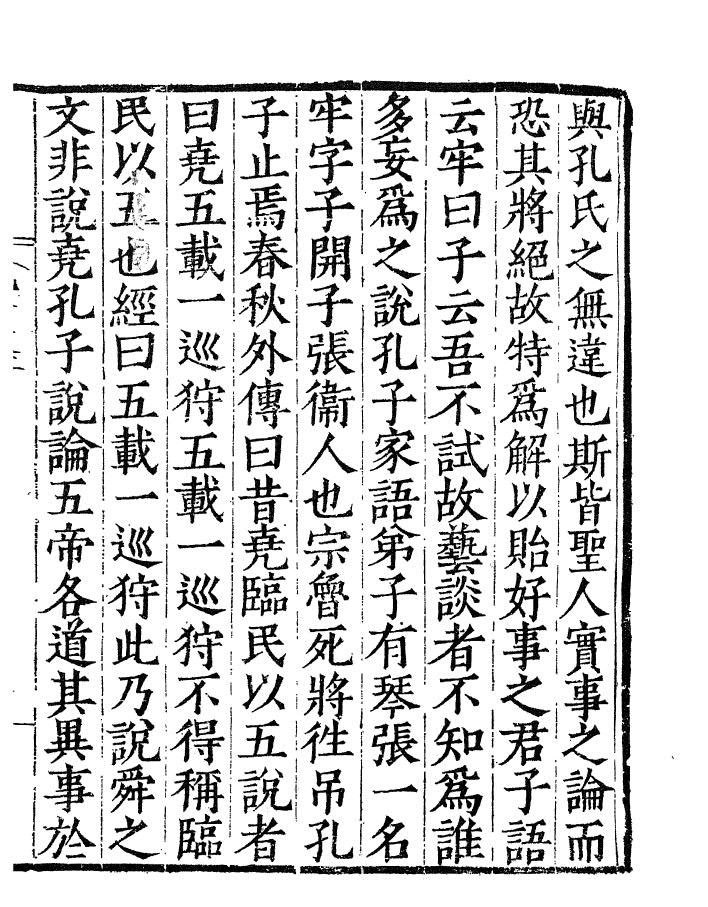 與孔氏之無違也斯皆聖人實事之論而
恐其將絕故特爲解以貽好事之君子語
云牢曰子云吾不試故藝談者不知爲誰
多妄爲之說孔子家語弟子有琴張一名
牢字子開子張衞人也宗魯死將往吊孔
子止焉春秋外傳曰昔堯臨民以五說者
曰堯五載一巡狩五載一巡狩不得稱臨
民以五也經曰五載一巡狩此乃說舜之
文非說堯孔子說論五帝各道其異事於